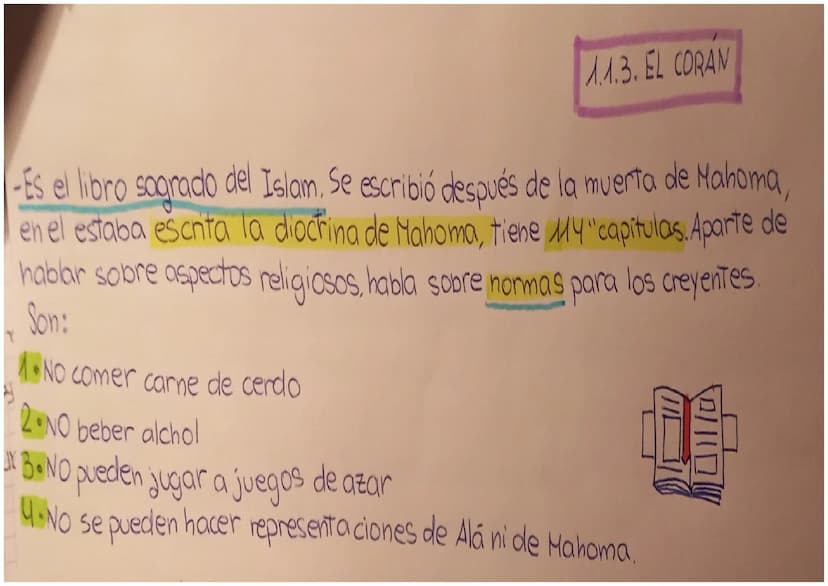 1.1.3. EL CORÁN
-Es el libro sagrado del Islam. Se escribió después de la muerta de Mahoma,
en el estaba escrita la dioctrina de Mahoma, tiene 114 "capitulas. Aparte de
hablar sobre aspectos religiosos, habla sobre normas para los creyentes.
Son:
1. No comer carne de cerdo
2. NO beber alchol
3. NO pueden jugar a juegos de azar
4. No se pueden hacer representaciones de Alá ni de Mahoma.